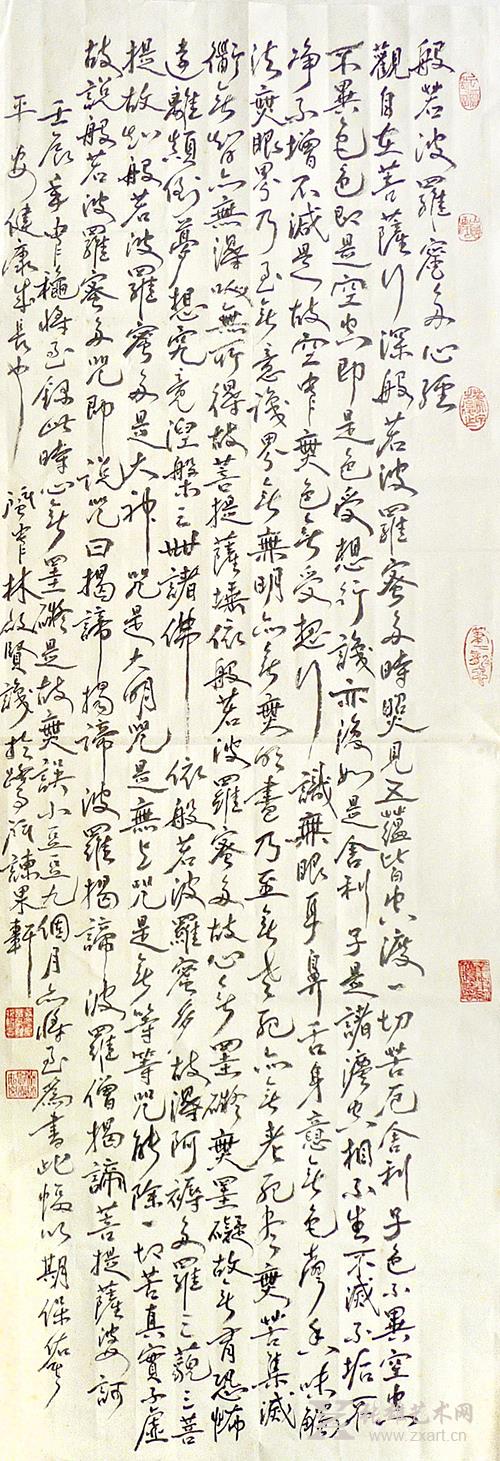 般若波羅蜜多心經
觀自在菩薩行深般若波羅蜜多時照見五蘊皆空度一切苦厄舍利子色不異空空
不異色色即是空空即是色受想行識亦復如是舍利子是諸法空相不生不滅不垢不
淨不增不減是故空中無色無受想行識無眼耳鼻舌身意無色聲香味觸
法無眼界乃至無意識界無無明亦無無明盡乃至無老死亦無老死盡無苦集滅
道無智亦無得以無所得故菩提薩埵依般若波羅蜜多故心無罣礙無罣礙故無有恐怖
遠離顛倒夢想究竟涅槃三世諸佛依般若波羅蜜多故得阿耨多羅三藐三菩
提故知般若波羅蜜多是大神咒是大明咒是無上咒是無等等咒能除一切苦真實不虛
故說般若波羅蜜多咒即說咒曰揭諦揭諦波羅揭諦波羅僧揭諦菩提薩婆訶
壬辰年中秋將至錄此時心無罣礙是故無誤小豆豆九個月亦將至為書此幅以期保佑
平安健康成長也
林啟賢識於 果軒
艺术网
www.zxart.cn